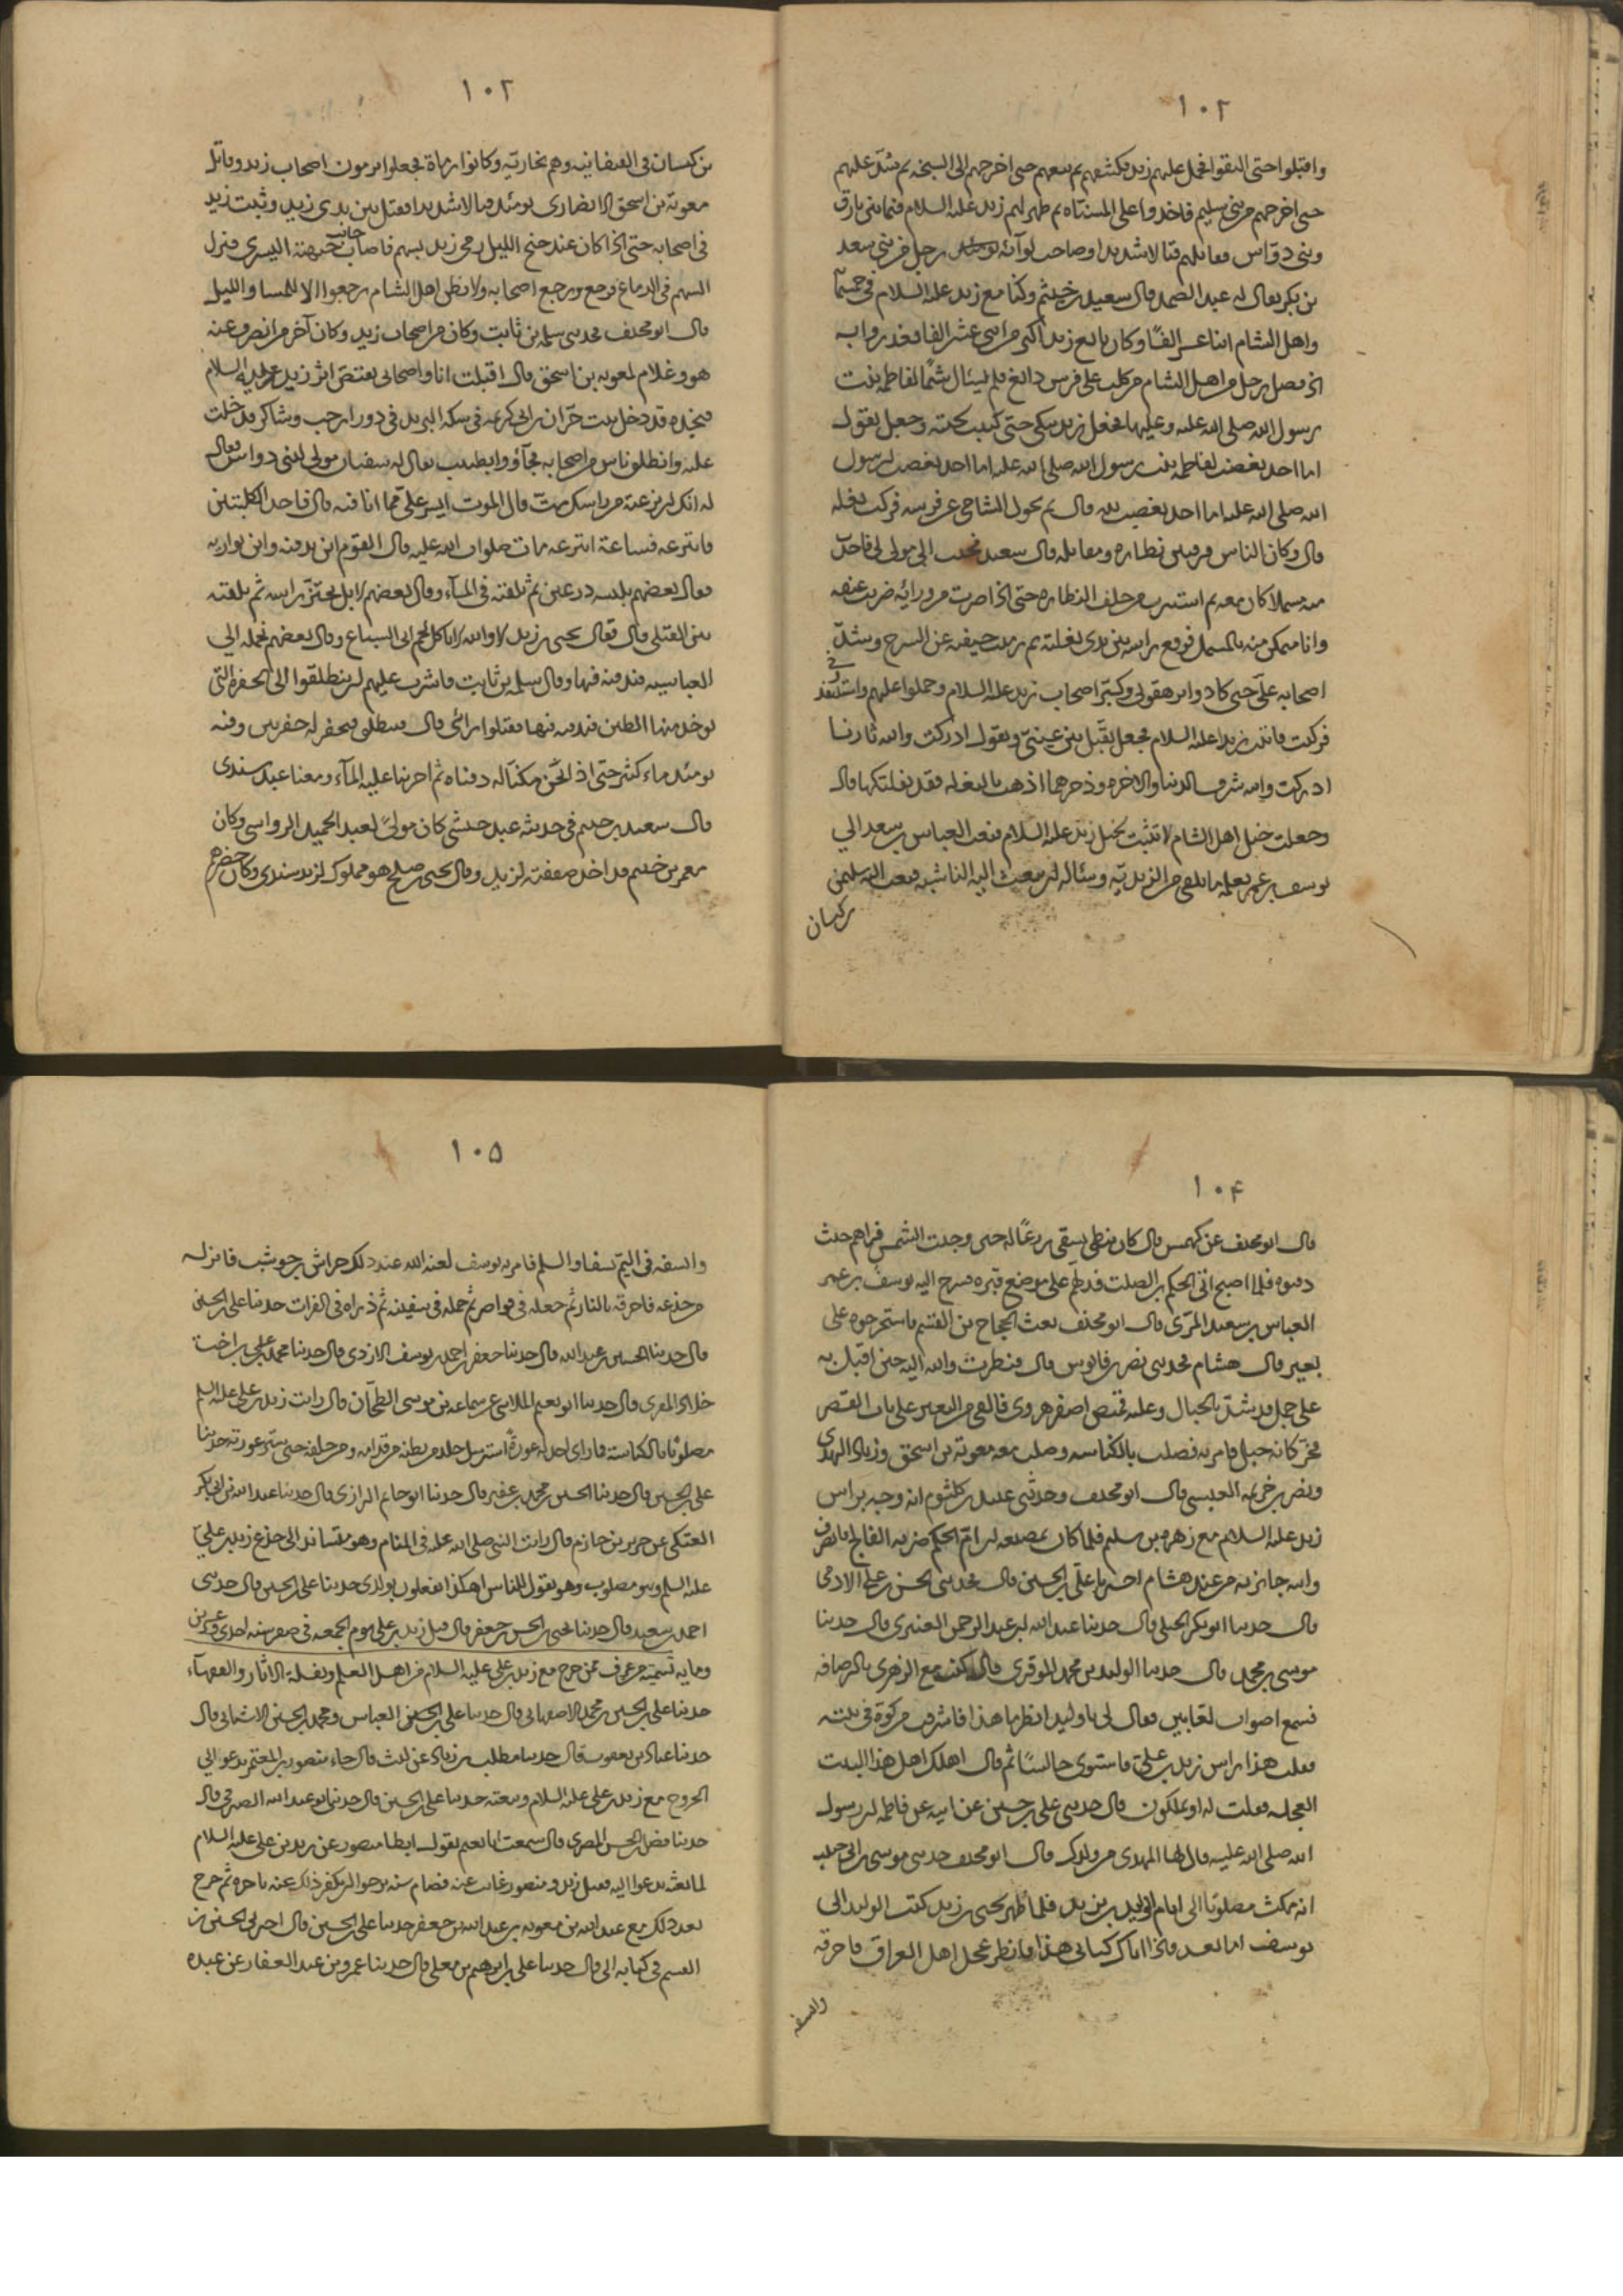 ١٠٢
واقتلوا حتى التقوا فحمل عليهم زيد فكشفهم ثم تبعهم حتى اخرجهم الى السبخه ثم شد عليهم
حتى اخرجهم من بني سليم فاخذوا على المسناه ثم ظهر لهم زيد عليه السلام فيما بين بارق
وبني دواس فقاتلهم قتالا شديدا وصاحب لوائه رجل من بني سعد
بن بكر يقال له عبد الصمد قال سعيد بن خيثم وكنا مع زيد عليه السلام في خمسمائة
واهل الشام اثنا عشر الفا وكان بايع زيدا اكثر من اثني عشر الفا فغدروا به
اذ فصل رجل من اهل الشام من كلب على فرس رائع فلم يزل شتما لفاطمه بنت
رسول الله صلى الله عليه وعليها فجعل زيد يبكي حتى لحيته وجعل يقول
اما احد يغضب لفاطمه بنت رسول الله صلى الله عليه اما احد يغضب لرسول
الله صلى الله عليه اما احد يغضب لله قال ثم تحول الشامي عن فرسه فركب بغله
قال وكان الناس فرقتين نظاره ومقاتله قال سعيد فجئت الى مولى لي فاخذت
منه مشملا كان معه ثم استترت من خلف النظاره حتى اذا صرت من ورائه ضربت عنقه
وانا متمكن منه بالمشمل فوقع راسه بين يدي بغلته ثم رميت جيفته عن السرج وشد
اصحابه علي حتى كادوا يرهقوني وكبر اصحاب زيد عليه السلام وحملوا عليهم واستنقذوني
فركبت فاتيت زيدا عليه السلام فجعل يقبل بين عيني ويقول ادركت والله ثارنا
ادركت والله شرف الدنيا والاخره وذخرها اذهب بالبغله فقد نفلتكها قال
وجعلت خيل اهل الشام لا تثبت لخيل زيد عليه السلام فبعث العباس بن سعد الى
يوسف بن عمر يعلمه ما يلقى من الزيديه وسئاله ان يبعث اليه الناشبه فبعث اليه سليمن
بن كيسان
١٠٢
بن كيسان في القيقانيه وهم بخاريه وكانوا رماة فجعلوا يرمون اصحاب زيد وقاتل
معويه بن اسحق الانصاري يومئذ قتالا شديدا فقتل بين يدي زيد وثبت زيد
في اصحابه حتى اذا كان عند جنح الليل رمي زيد بسهم فاصاب جانب جبهته اليسرى فنزل
السهم في الدماغ فرجع ورجع اصحابه ولا يظن اهل الشام رجعوا الا للمسا والليل
قال ابو مخنف فحدثني سلمه بن ثابت وكان من اصحاب زيد وكان آخر من انصرف عنه
هو وغلام لمعويه بن اسحق قال اقبلت انا واصحابي نقتص اثر زيد عليه السلام
فنجده قد دخل بيت حران بن ابي كريمه في سكه البريد في دور ارحب وشاكر فدخلت
عليه وانطلق ناس من اصحابه فجاؤو بطبيب يقال له سفيان مولى لبني دواس فقال
له انك ان نزعته من راسك مت قال الموت ايسر علي مما انا فيه قال فاخذ الكلبتين
فانتزعه فساعة انتزعه مات صلوات الله عليه قال القوم اين ندفنه واين نواريه
فقال بعضهم نلبسه درعين ثم نلقيه في المآء وقال بعضهم لا بل نحتز راسه ثم نلقيه
بين القتلى قال فقال يحيى بن زيد لا والله لا ياكل لحم ابي السباع وقال بعضهم نحمله الى
العباسيه فندفنه فيها وقال سلمه بن ثابت فاشرت عليهم ان ينطلقوا الى الحفرة التي
يوخذ منها الطين فندفنه فيها فقبلوا رائي قال فانطلقنا فحفرنا له حفرتين وفيه
يومئذ ماء كثير حتى اذا نحن مكنا له دفناه ثم اجرينا عليه المآء ومعنا عبد سندي
قال سعيد بن خيثم في حديثه عبد حبشي كان مولى لعبد الحميد الرواسي وكان
معمر بن خيثم قد اخذ صفقته لزيد وقال يحيى بن صلح هو مملوك لزيد سندي وكان حضرهم
١٠۴
قال ابو مخنف عن كهمس قال كان نبطي يسقي زرعا له حين وجبت الشمس فراهم حيث
دفنوه فلما اصبح اتى الحكم بن الصلت فدلهم على موضع قبره فسرح اليه يوسف بن عمر
العباس بن سعيد المري قال ابو مخنف بعث الحجاج بن القسم فاستخرجوه على
بعير قال هشام فحدثني نصر بن قابوس قال فنظرت والله اليه حين اقبل به
على جمل قد شد بالحبال وعليه قميص اصفر هروي فالقي من البعير على باب القصر
فخر كانه جبل فامر به فصلب بالكناسه وصلب معه معويه بن اسحق وزياد الهندي
ونصر بن خزيمه العبسي قال ابو مخنف وحدثني عبيد بن كلثوم انه وجه براس
زيد عليه السلام مع زهره بن سليم فلما كان بمضيعه ابن ام الحكم ضربه الفالج فانصرف
واتته جايزته من عند هشام اخبرنا علي بن الحسين قال فحدثني الحسن بن علي الادمي
قال حدثنا ابو بكر الجبلي قال حدثنا عبد الله بن عبد الرحمن العنبري قال حدثنا
موسى بن محمد قال حدثنا الوليد بن محمد الموقري قال كنت مع الزهري بالرصافه
فسمع اصوات لعابين فقال لي يا وليد انظر ما هذا فاشرفت من كوة في بيته
فقلت هذا راس زيد بن علي فاستوى جالسا ثم قال اهلك اهل هذا البيت
العجله فقلت له او يملكون قال حدثني علي بن حسين عن ابيه عن فاطمه ان رسول
الله صلى الله عليه قال لها المهدي من ولدك قال ابو مخنف حدثني موسى بن ابي حبيب
انه مكث مصلوبا الى ايام الوليد بن يزيد فلما ظهر يحيى بن زيد كتب الوليد الى
يوسف اما بعد فاذا اتاك كتابي هذا فانظر عجل اهل العراق فاحرقه
وانسفه
١٠۵
وانسفه في اليم نسفا والسلم فامر به يوسف لعنه الله عند ذلك خراش بن حوشب فانزله
من جذعه فاحرقه بالنار ثم جعله في قواصر ثم حمله في سفينه ثم ذراه في الفرات حدثنا علي بن الحسين
قال حدثنا الحسين بن عبد الله قال حدثنا جعفر بن احمد بن يوسف الازدي قال حدثنا محمد بن علي بن اخت
خلاد المقري قال حدثنا ابو نعيم الملائي عن سماعه بن موسى الطحان قال رايت زيد بن علي عليه السلم
مصلوبا بالكناسة فما راى احد له عورة استرسل جلد من بطنه من قدامه ومن خلفه حتى ستر عورته حدثنا
علي بن الحسين قال حدثنا الحسين بن محمد بن عفير قال حدثنا ابو حاتم الرازي قال حدثنا عبد الله بن ابي بكر
العتكي عن جرير بن حازم قال رايت النبي صلى الله عليه في المنام وهو متساند الى جذع زيد بن علي
عليه السلم وهو مصلوب وهو يقول للناس اهكذا تفعلون بولدي حدثنا علي بن الحسين قال حدثني
احمد بن سعيد قال حدثنا يحيى بن الحسن بن جعفر قال قتل زيد بن علي يوم الجمعه في صفر سنه احدى وعشرين
ومايه تسمية من عرف ممن خرج مع زيد بن علي عليه السلام من اهل العلم ونقلة الاثار والفقهآء
حدثنا علي بن الحسين بن محمد الاصفهاني قال حدثنا علي بن الحسين العباس ومحمد بن الحسين الاشناني قال
حدثنا عباد بن يعقوب قال حدثنا مطلب بن زياد عن ليث قال جاء منصور بن المعتمر يدعو الى
الخروج مع زيد بن علي عليه السلام وبيعته حدثنا علي بن الحسين قال حدثنا ابو عبد الله الصيرفي قال
حدثنا فضل بن الحسن المصري قال سمعت ابا نعيم يقول ابطا منصور عن زيد بن علي عليه السلام
لما بعثه يدعو اليه فقتل زيد ومنصور غايب عنه فصام سنه يرجوا ان يكفر ذلك عنه تاخره ثم خرج
بعد ذلك مع عبد الله بن معويه بن عبد الله بن جعفر حدثنا علي بن الحسين قال اخبرني الحسين بن
القسم في كتابه الي قال حدثنا علي بن ابرهيم بن معلى قال حدثنا عمرو بن عبد الغفار عن عبده